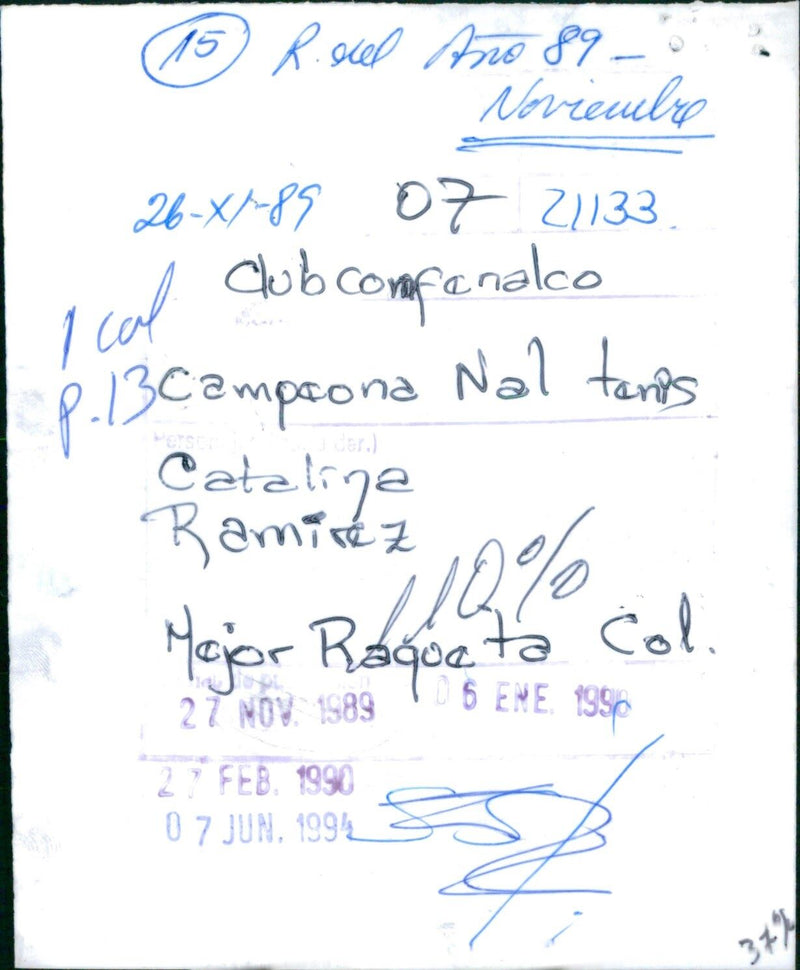 15 R. del Año 89 -
Noviembre
26-XI-89 07 21133.
Club comfenalco
1 col
p.13
Campeona Nal tenis
Catalina
Ramirez
110%
Mejor Raqueta Col.
27 NOV. 1989 06 ENE. 1990
27 FEB. 1990
07 JUN. 1994
37%